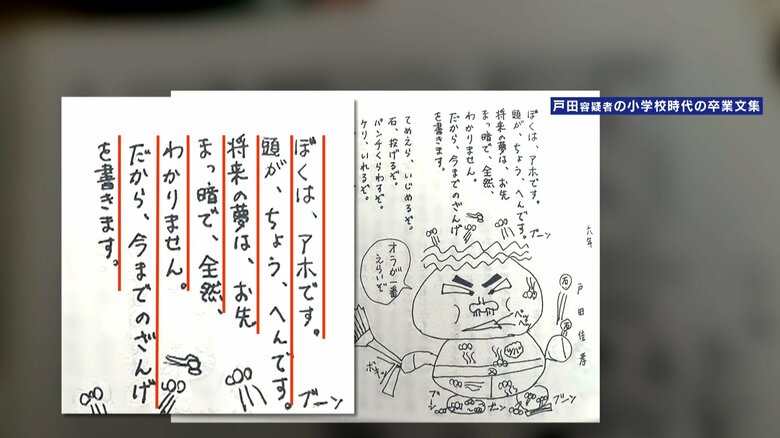 戸田容疑者の小学校時代の卒業文集
ぼくは、アホです。
頭が、ちょう、へんです。
将来の夢は、お先
まっ暗で、全然、
わかりません。
だから、今までのざんげ
を書きます。
ブーン
六年
戸田佳孝
ぼくは、アホです。
頭が、ちょう、へんです。
将来の夢は、お先
まっ暗で、全然、
わかりません。
だから、今までのざんげ
を書きます。
てめえら、いじめるぞ。
石、投げるぞ。
パンチくらわすぞ。
ケリ、いれるぞ。
ブーン
オラが一番
えらいぞ
石
石
ペッ
ツバ
ボキッ
ブーン
ブーン
ブーン